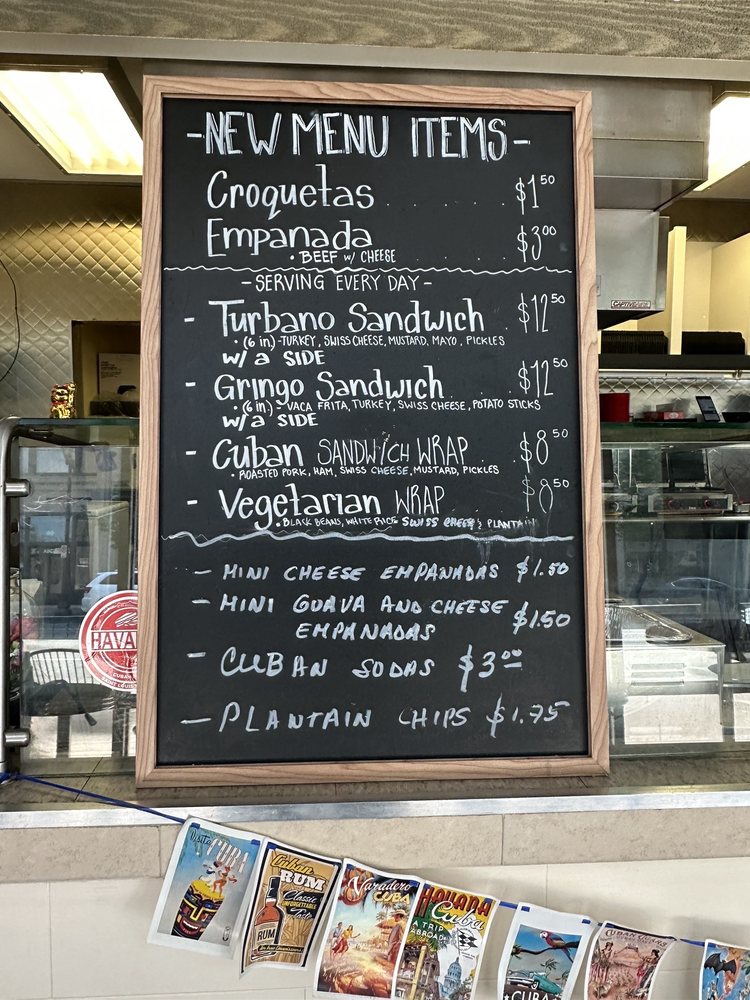 -NEW MENU ITEMS-
Croquetas . . . . . $1.50
Empanada $3.00
• BEEF w/ CHEESE
-SERVING EVERY DAY-
- Turbano Sandwich . $12.50
• (6 in.) -TURKEY, SWISS CHEESE, MUSTARD, MAYO, PICKLES
w/ a SIDE
- Gringo Sandwich . . $12.50
• (6 in.) - VACA FRITA, TURKEY, SWISS CHEESE, POTATO STICKS
w/ a SIDE
- Cuban SANDWICH WRAP . $8.50
• ROASTED PORK, HAM, SWISS CHEESE, MUSTARD, PICKLES
- Vegetarian WRAP . . $8.50
• BLACK BEANS, WHITE RICE SWISS CHEESE & PLANTAIN
- MINI CHEESE EMPANADAS $1.50
- MINI GUAVA AND CHEESE $1.50
EMPANADAS
- CUBAN SODAS $3.00
- PLANTAIN CHIPS $1.75
HAVA
CAPTIVEAIRE
Visit CUBA
Cuban
RUM
Classic
UNFORGETTABLE
Taste
RUM
Varadero
CUBA
HAVANA
Cuba
A TRIP
ABROAD
CUBA
CUBAN CIGARS
CUBA